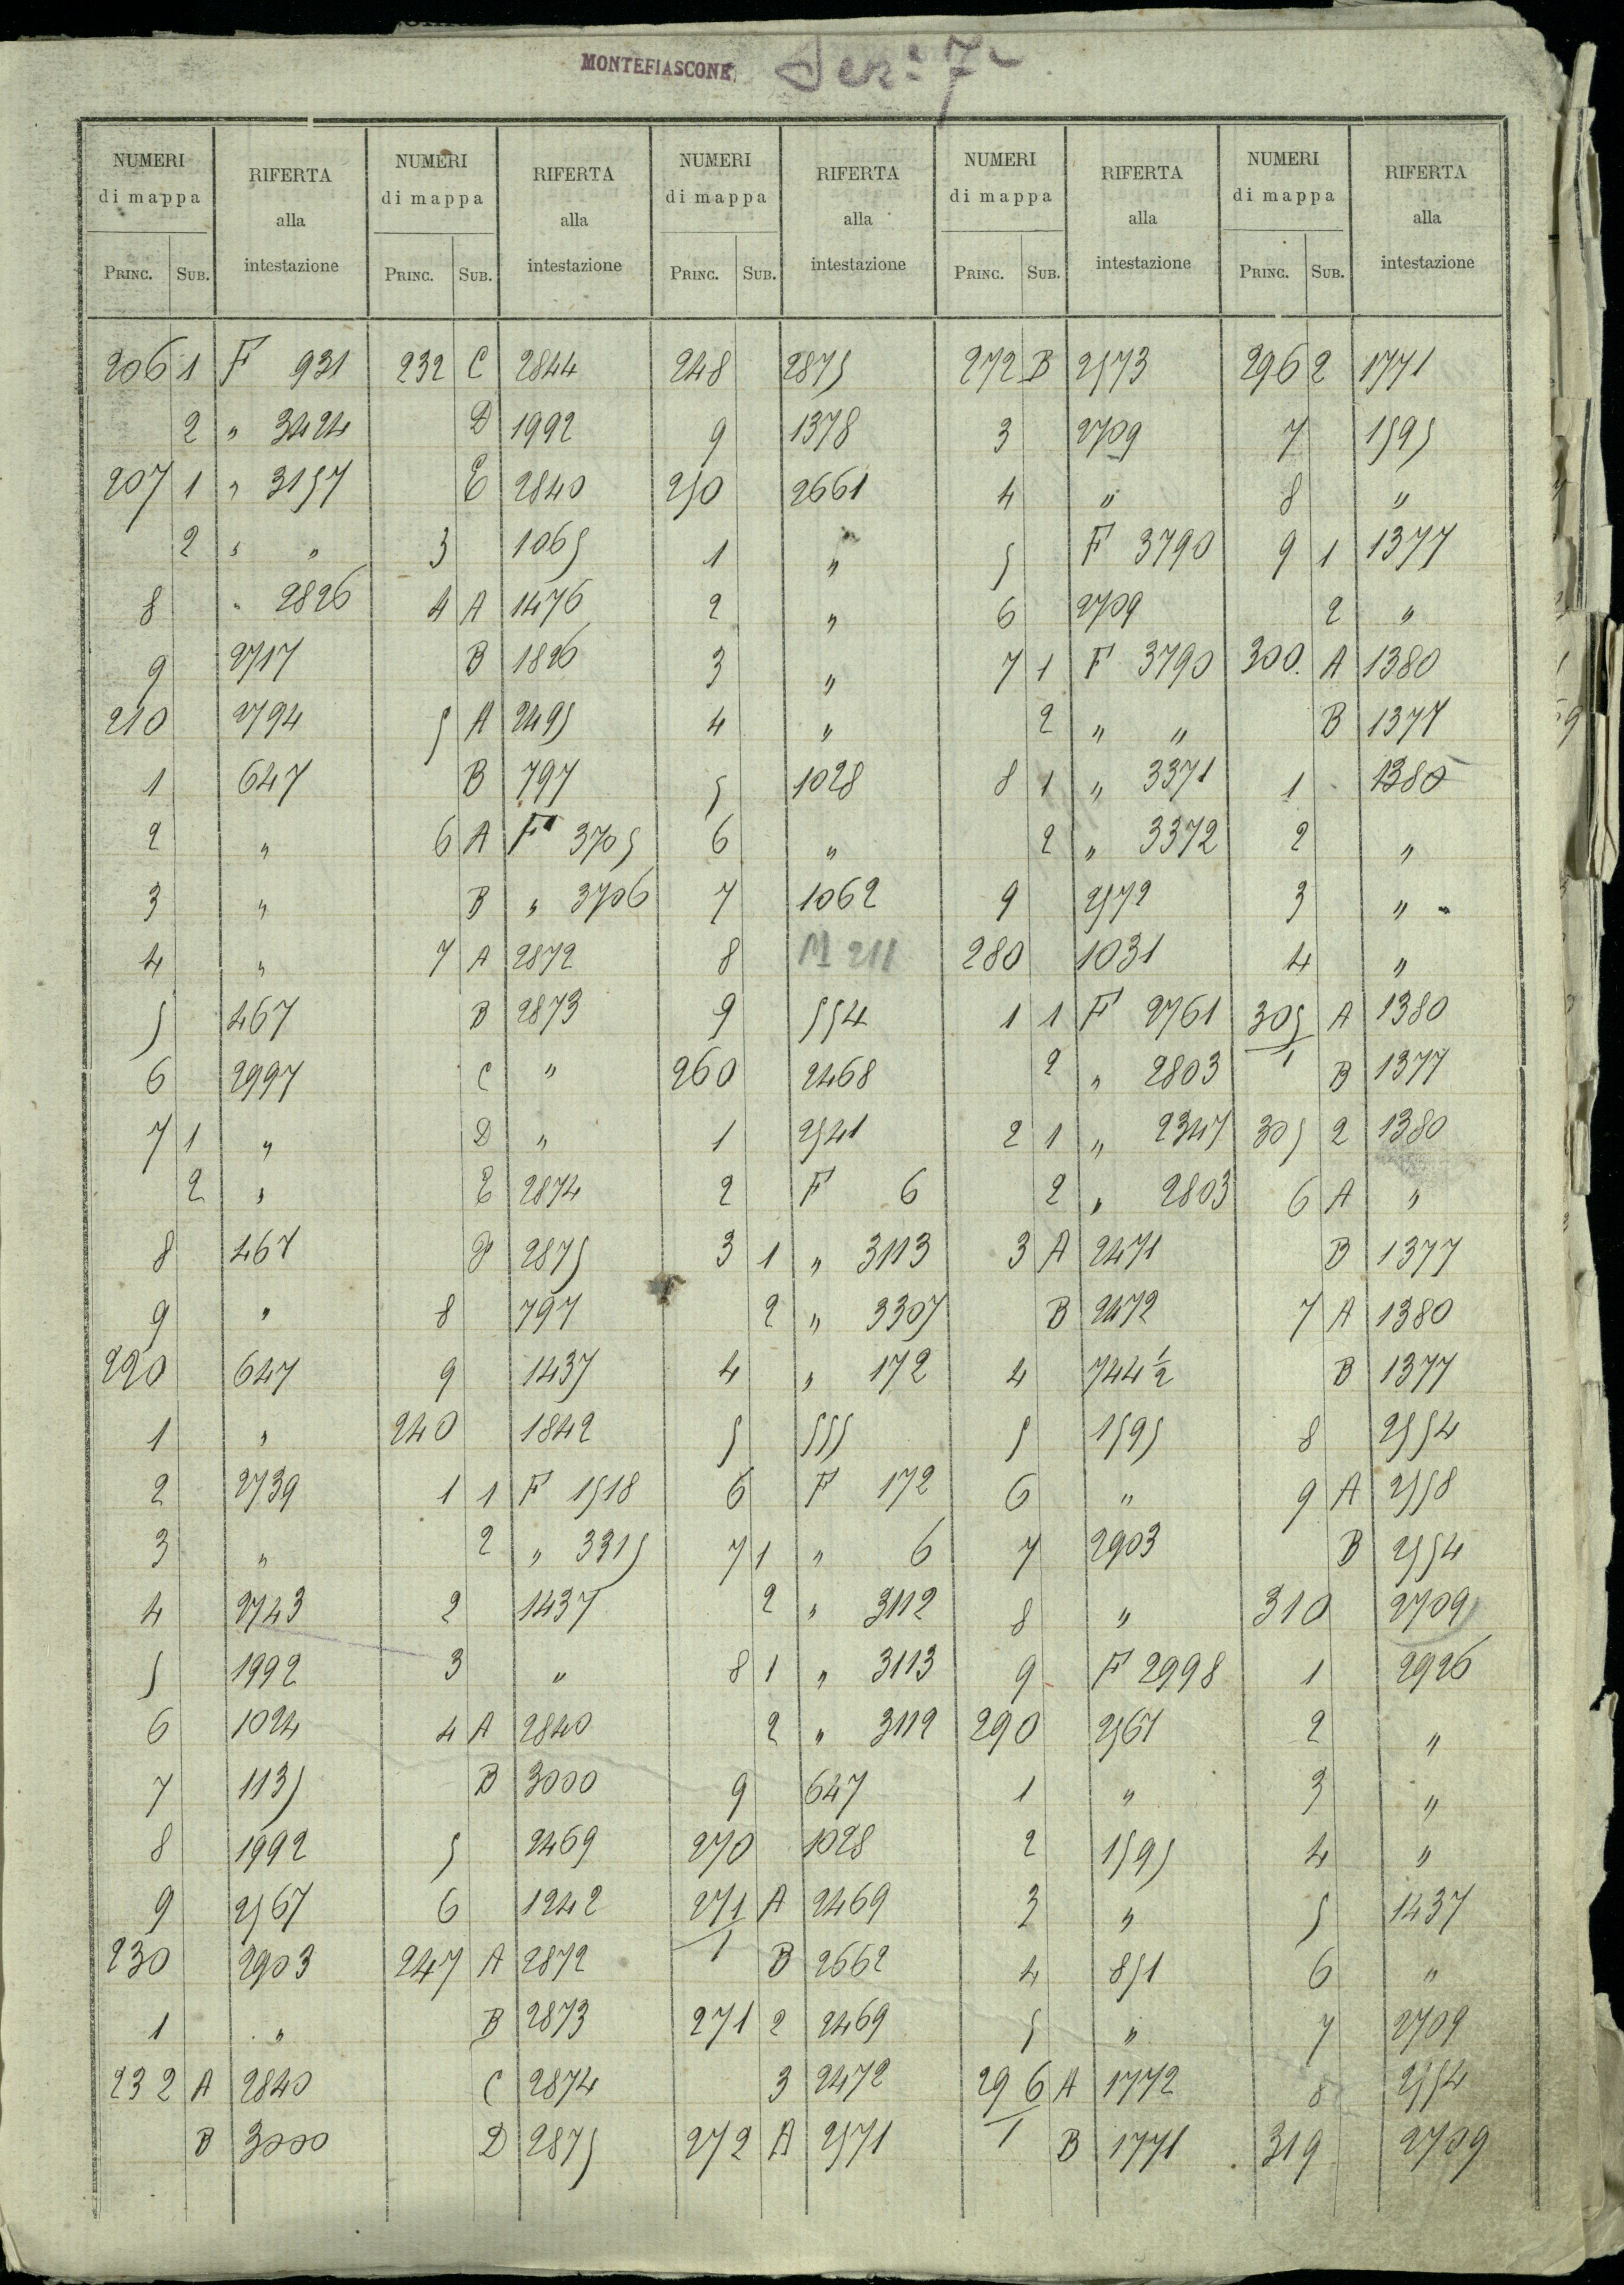 MONTEFIASCONE Sez: 7ª
NUMERI di mappa RIFERTA alla intestazione NUMERI di mappa RIFERTA alla intestazione NUMERI di mappa RIFERTA alla intestazione NUMERI di mappa RIFERTA alla intestazione NUMERI di mappa RIFERTA alla intestazione
PRINC. SUB. PRINC. SUB. PRINC. SUB. PRINC. SUB. PRINC. SUB.
206 1 F 931 232 C 2844 248 2875 272 B 2573 296 2 1771
2 " 3424 D 1992 9 1378 3 2709 7 1595
207 1 " 3157 E 2840 250 2661 4 " 8 "
2 " " 3 1065 1 " 5 F 3790 9 1 1377
8 " 2826 4 A 1476 2 " 6 2709 2 "
9 2717 B 1826 3 " 7 1 F 3790 300. A 1380
210 2794 5 A 2495 4 " 2 " " B 1377
1 647 B 797 5 1028 8 1 " 3371 1 1380
2 " 6 A F 3705 6 " 2 " 3372 2 "
3 " B " 3706 7 1062 9 2572 3 "
4 " 7 A 2872 8 M 211 280 1031 4 "
5 467 B 2873 9 554 1 1 F 2761 305/1 A 1380
6 2997 C " 260 2468 2 " 2803 B 1377
7 1 " D " 1 2541 2 1 " 2347 305 2 1380
2 " E 2874 2 F 6 2 " 2803 6 A "
8 467 F 2875 3 1 " 3113 3 A 2471 B 1377
9 " 8 797 2 " 3307 B 2472 7 A 1380
220 647 9 1437 4 " 172 4 744 1/2 B 1377
1 " 240 1842 5 555 5 1595 8 2554
2 2739 1 1 F 1518 6 F 172 6 " 9 A 2558
3 " 2 " 3315 7 1 " 6 7 2903 B 2554
4 2743 2 1437 2 " 3112 8 " 310 2709
5 1992 3 " 8 1 " 3113 9 F 2998 1 2926
6 1024 4 A 2840 2 " 3112 290 2567 2 "
7 1135 B 3000 9 647 1 " 3 "
8 1992 5 2469 270 1028 2 1595 4 "
9 2567 6 1242 271/1 A 2469 3 " 5 1437
230 2903 247 A 2872 B 2662 4 851 6 "
1 " B 2873 271 2 2469 5 " 7 2709
232 A 2840 C 2874 3 2472 296/1 A 1772 8 2554
B 3000 D 2875 272 A 2571 B 1771 319 2709